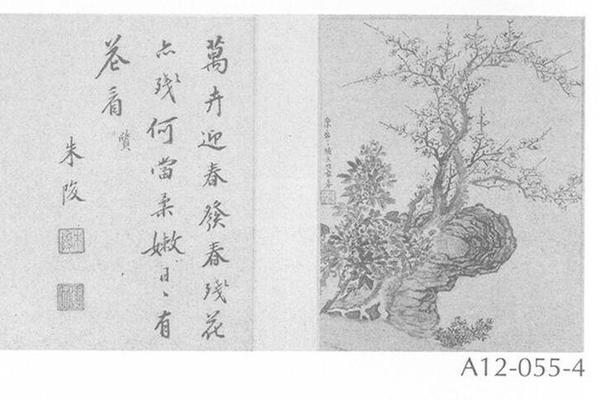 萬卉迎春發春殘花
亦殘何當柔嫩日々有
花看
朱陵
A12-055-4